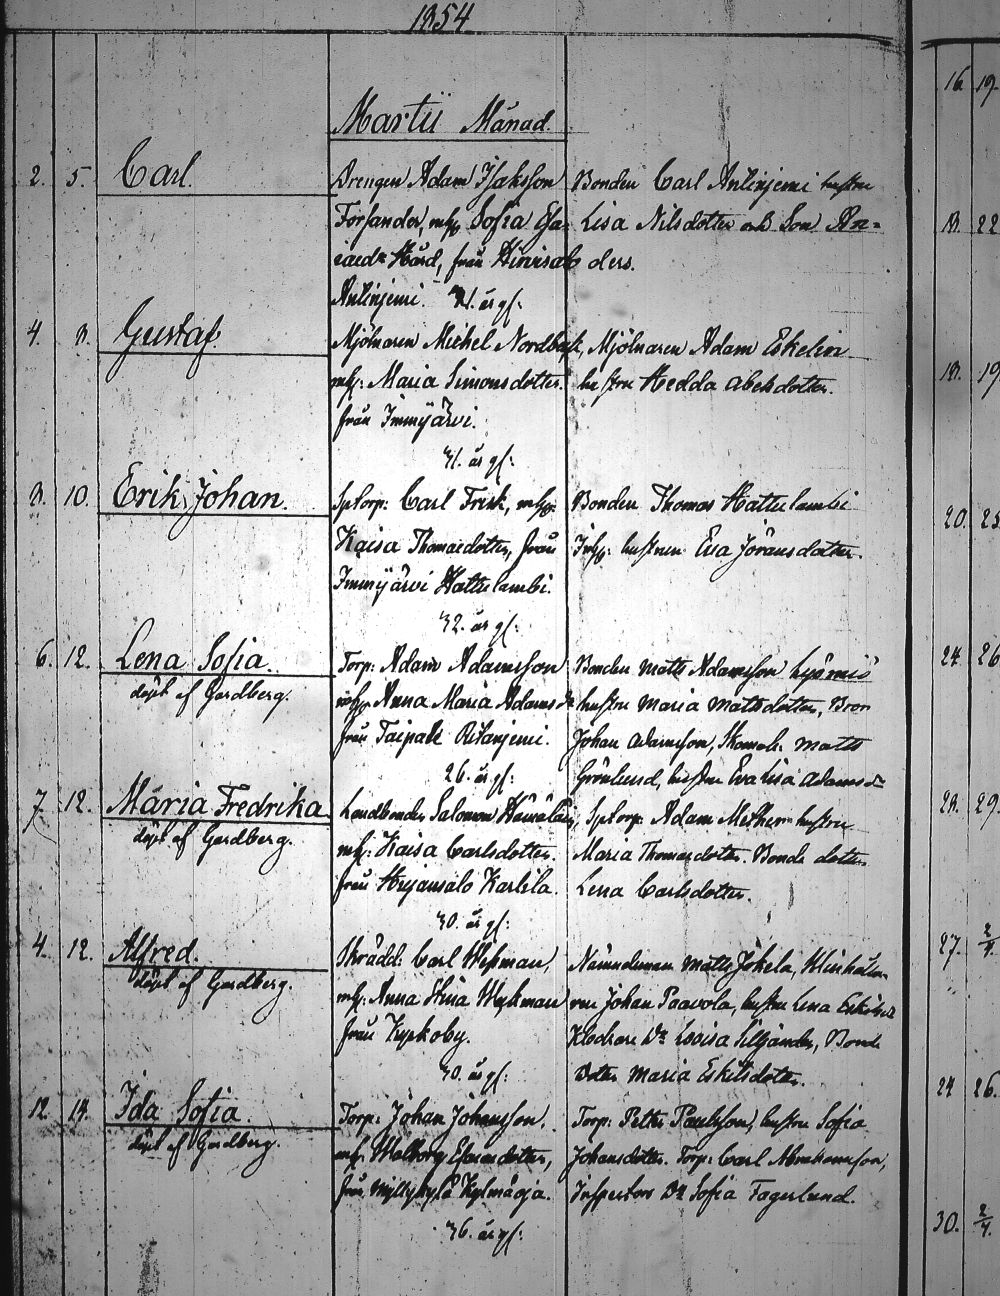 1854
Martii Månad
2. 5. Carl.
Drengen Adam Isaksson
Forsander, mhu Sofia Esa-
iaedr Hård, från Hirvisalo
Anlinjemi. 31. år gl:
Bonden Carl Anlinjemi hustru
Lisa Nilsdotter och Son An-
ders.
4. 8. Gustaf
Mjölnaren Michel Nordbäck,
mh: Maria Simonsdotter.
från Immijärvi.
31. år gl:
Mjölnaren Adam Eskelin
hustru Hedda Abelsdotter.
8. 10. Erik Johan.
Sptorp: Carl Frisk, mhu:
Kaisa Thomasdotter, från
Immijärvi Hattulambi.
32. år gl:
Bonden Thomas Hattulambi
Inh: hustrun Eva Jöransdotter.
6. 12. Lena Sofia.
döpt af Gardberg.
Torp: Adam Adamsson
mhu Anna Maria Adamsdr
från Taipale Ritanjemi.
26. år gl:
Bonden Matts Adamsson
hustru Maria Mattsdotter, Bror
Johan Adamsson, Skomak: Matts
Grönlund, hustru Eva Lisa Adamsdr
7. 12. Maria Fredrika
döpt af Gardberg.
Landbonden Salomon
mh: Kaisa Carlsdotter.
från Karlila.
30. år gl:
Sptorp: Adam Mether hustru
Maria Thomasdotter. Bonde dotter
Lena Carlsdotter.
4. 12. Alfred.
döpt af Gardberg.
Skrädd: Carl Wekman,
mh: Anna Stina Wekman
från Kyrkoby.
30. år gl:
Nämndeman Matts Jokela,
Johan Paavola, hustru Lena
Klockare Dr Lovisa Siljander, Bonde
Dotter Maria Eskilsdotter.
12. 14. Ida Sofia.
döpt af Gardberg.
Torp: Johan Johansson,
mh: Walborg Esaiasdotter,
från Myllykylä Kylmäoja.
36. år gl:
Torp: Petter Paulsson, hustru Sofia
Johansdotter. Torp: Carl Abrahamsson,
Inspectors Dr Sofia Fagerlund.
16. 19.
18. 22
18. 19
20. 25
24. 26
28. 29.
27. 2/4.
24 26.
30. 2/4.